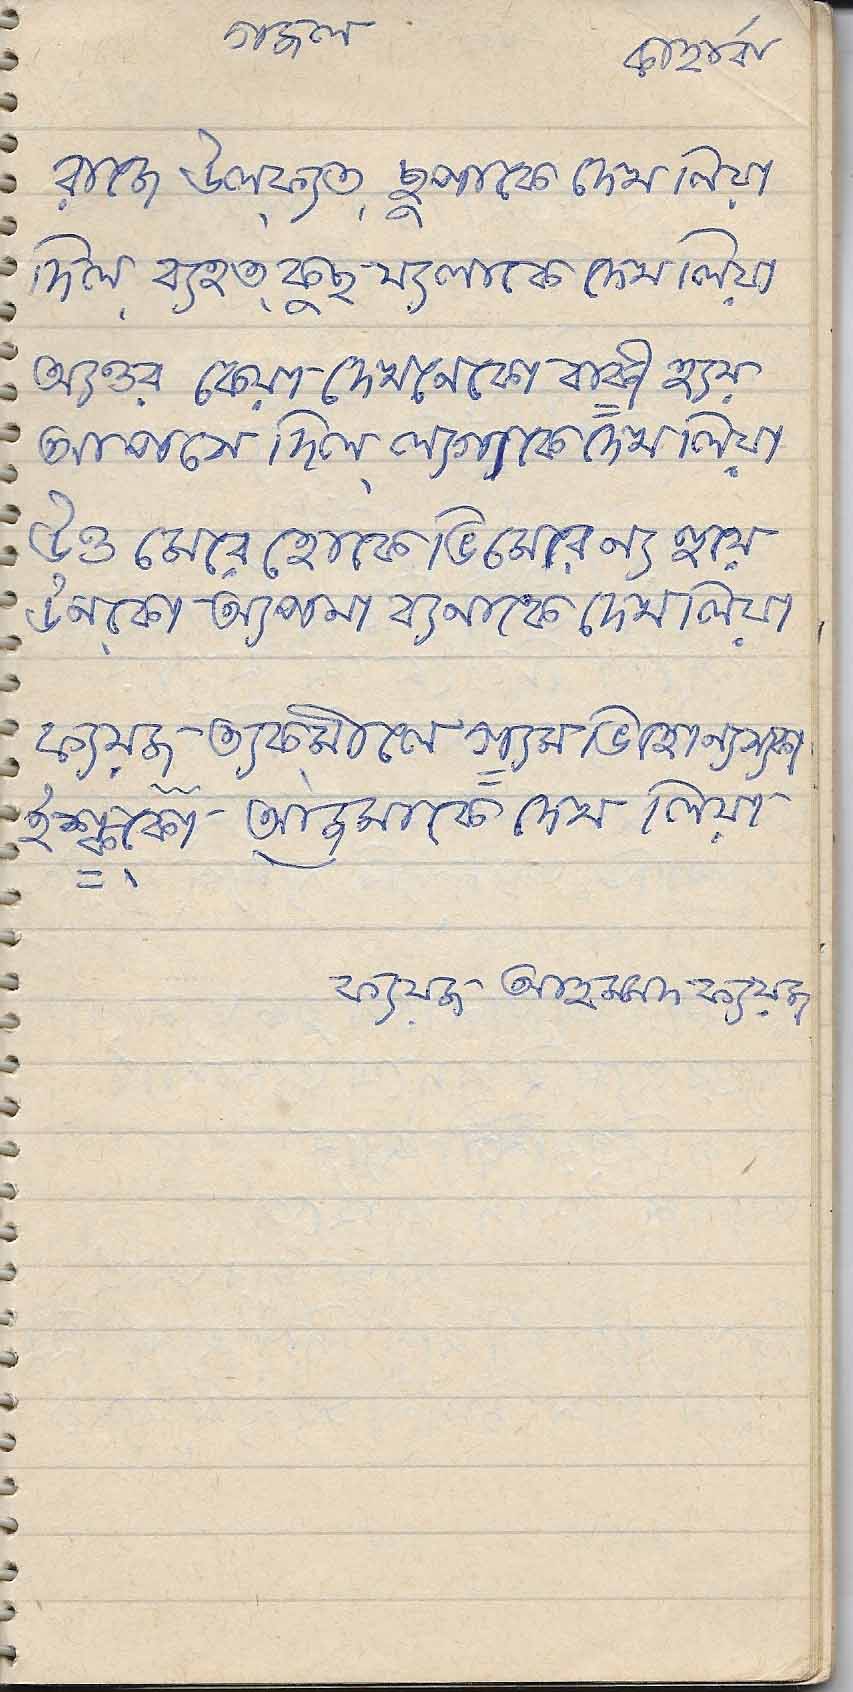 গাজল
কাহার্বা
রাজে উল্‌ফ্যত্‌ ছুপাকে দেখ লিয়া
দিল্‌ ব্যহত্‌ কুছ য্যলাকে দেখ লিয়া
অ্যওর কেয়া দেখনেকো বাকী হ্যয়
আপসে দিল্‌ ল্যগাকে দেখ লিয়া
উও মেরে হোকে ভি মেরে ন্য হুয়ে
উন্‌কো অ্যপনা ব্যনাকে দেখ লিয়া
ফ্যয়জ ত্যক্‌মীলে গ্যম ভি হো ন্য স্যকা
ইশ্ক্‌কো আজমাকে দেখ লিয়া
ফ্যয়জ আহমদ ফ্যয়জ